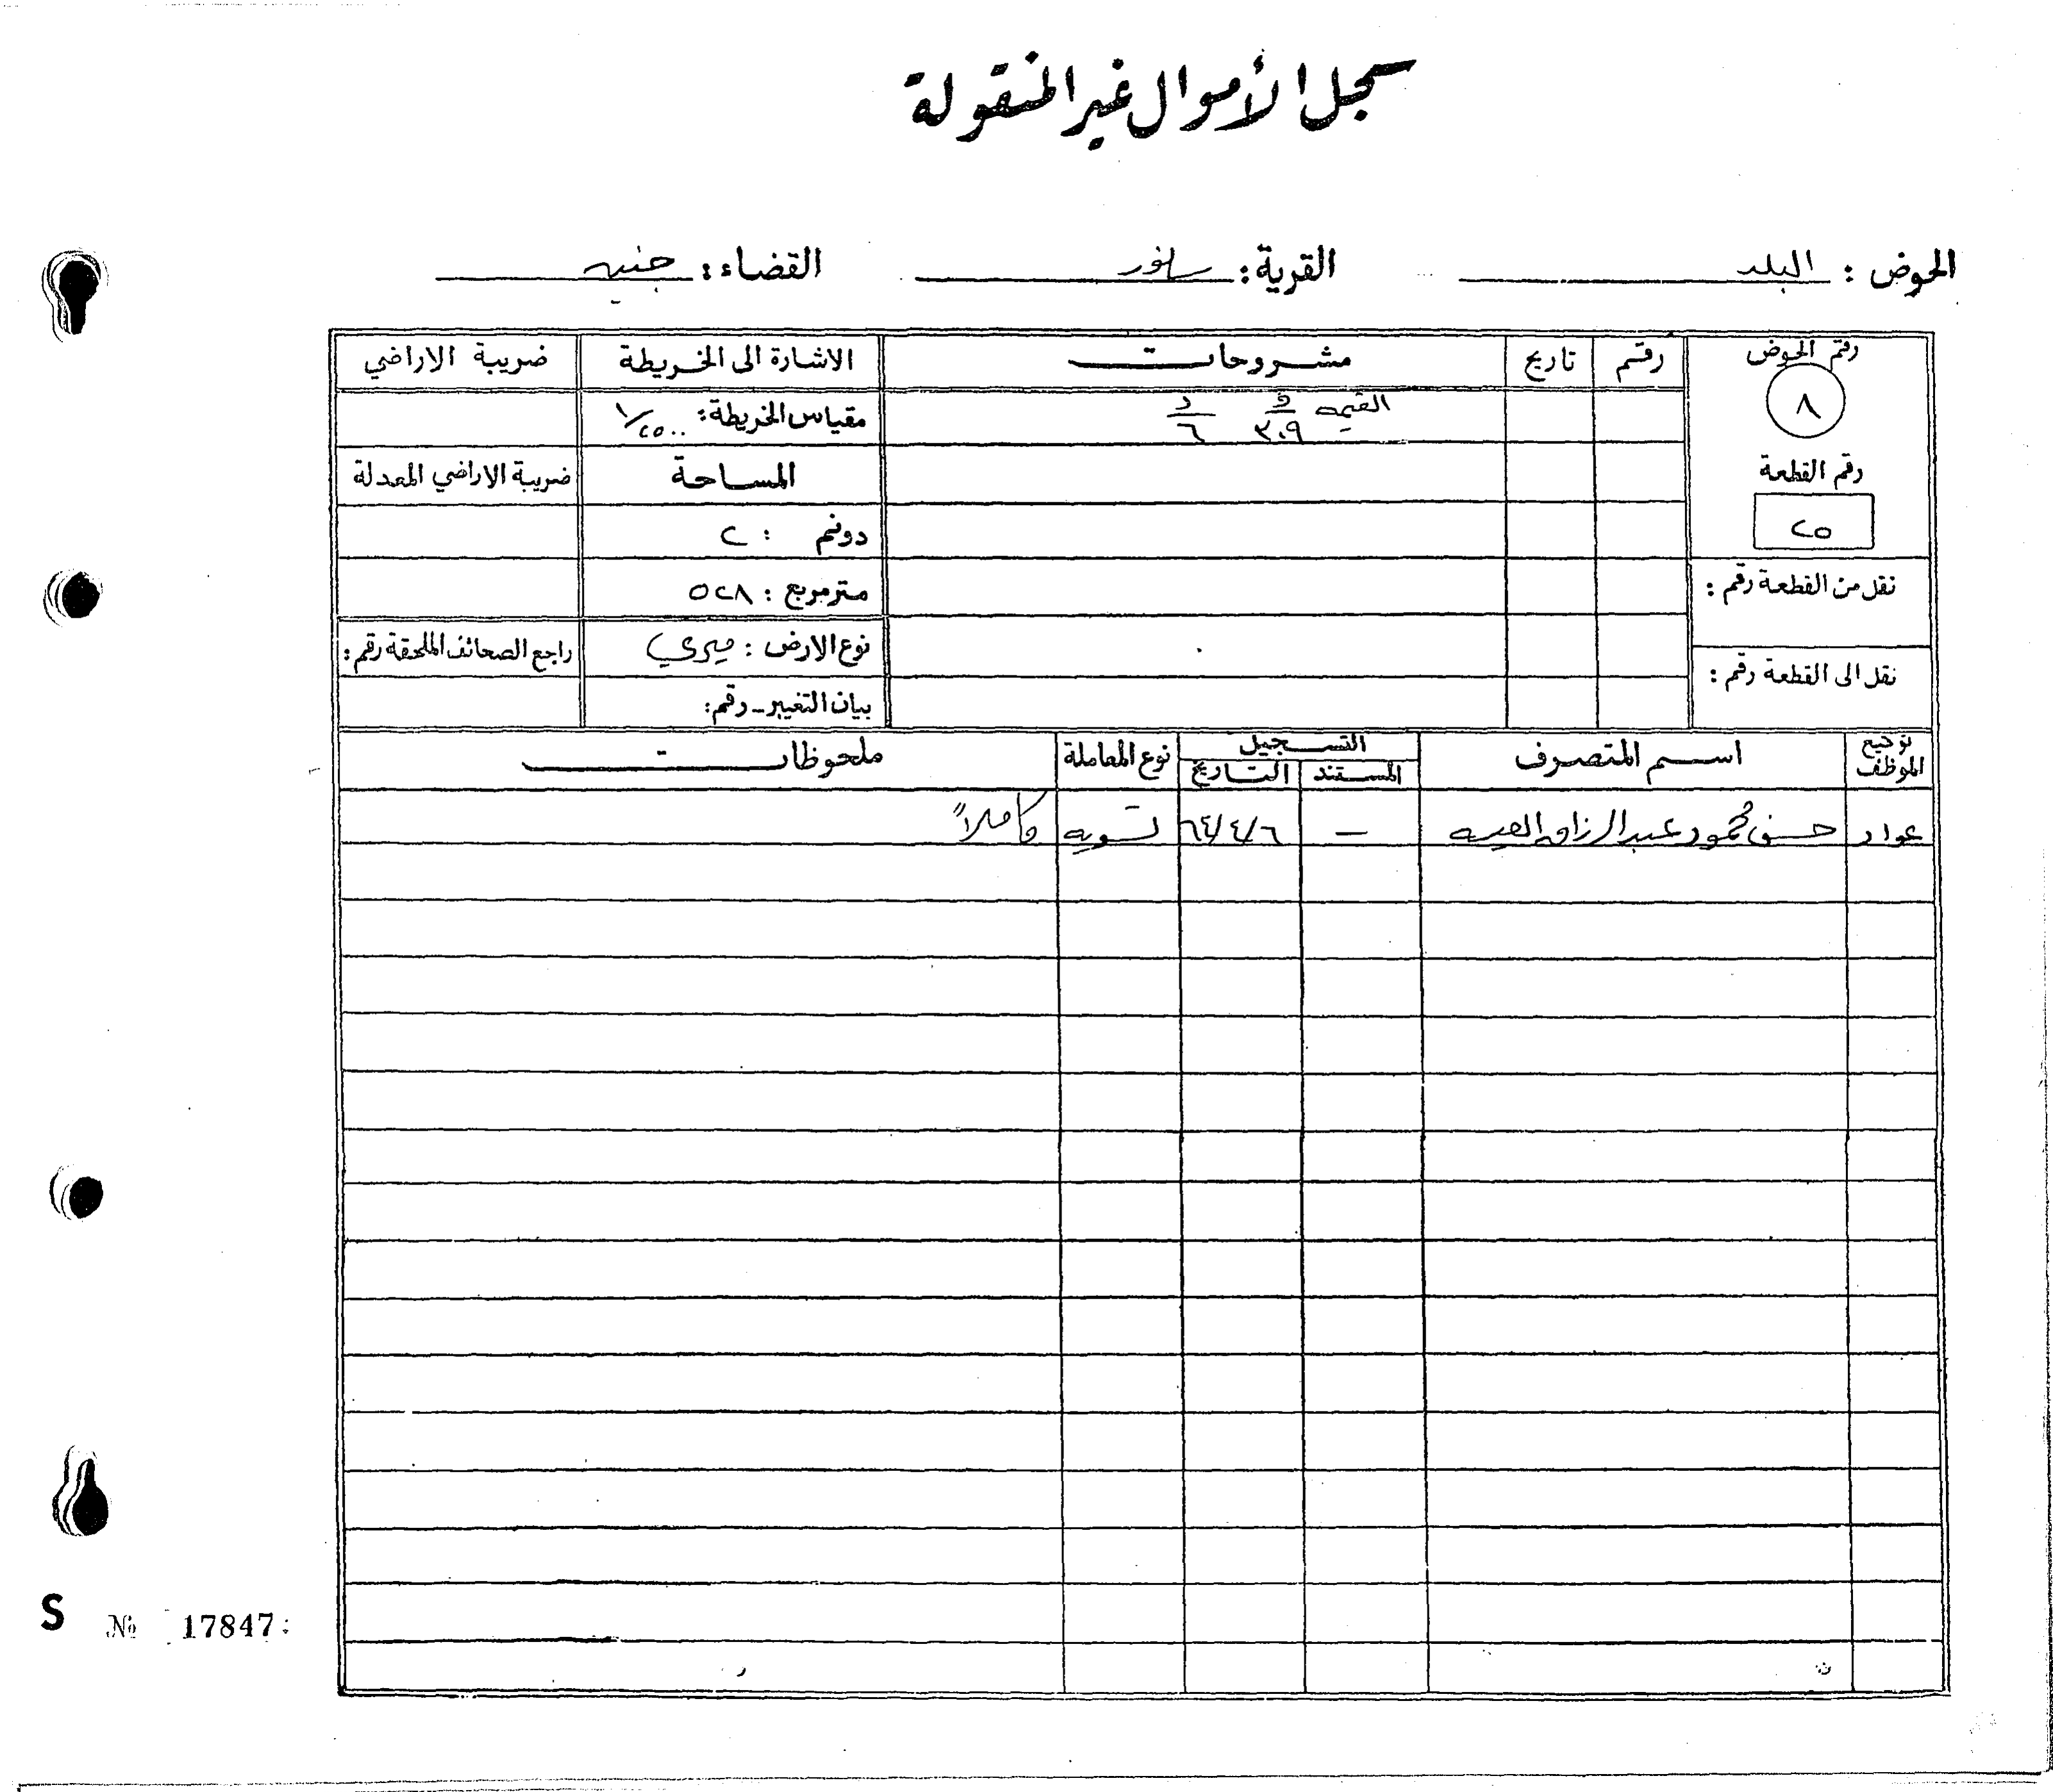 سجل الأموال غير المنقولة
الحوض : البلد القرية : صانور القضاء : جنين
رقم الحوض رقم تاريخ مشروحات الاشارة الى الخريطة ضريبة الاراضي
٨ القيمه ف ٣٠٩ د ٦ مقياس الخريطة : ١/٢٥٠٠
رقم القطعة المساحة ضريبة الاراضي المعدلة
٢٥ دونم : ٢
نقل من القطعة رقم : متر مربع : ٥٢٨
نوع الارض : ميري راجع الصحائف الملحقة رقم :
نقل الى القطعة رقم : بيان التغيير - رقم :
توقيع الموظف اسم المتصرف التسجيل نوع المعاملة ملحوظات
المستند التاريخ
عواد حسن محمود عبد الرزاق — ٦٤/٤/٦ تسويه كاملاً
S № 17847